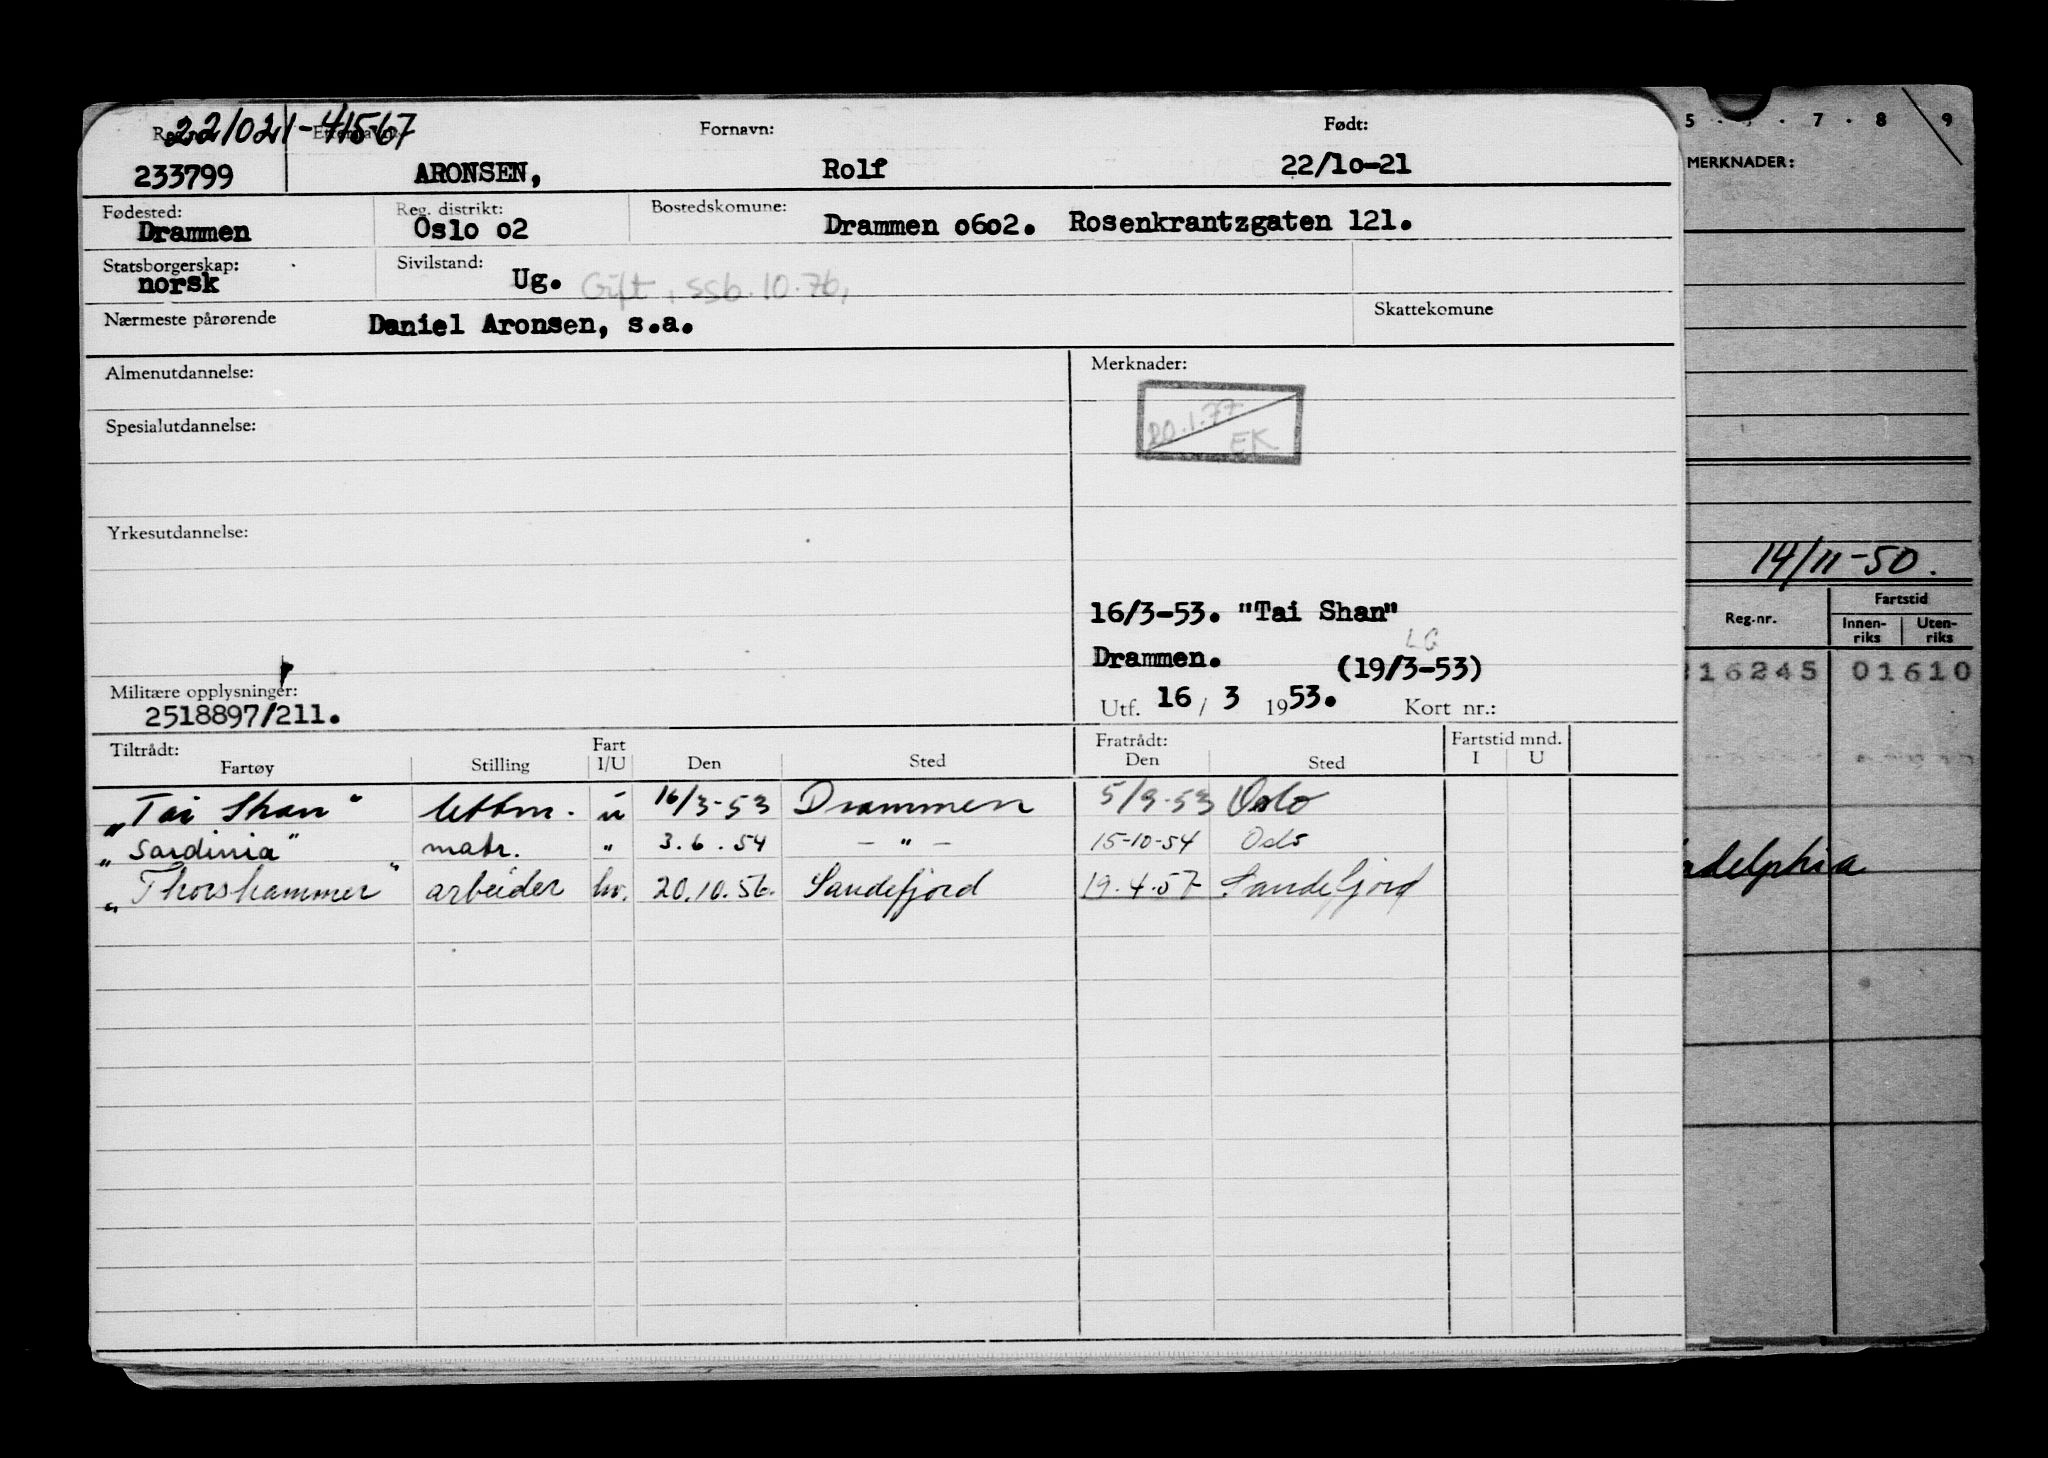 221021-41567
Fornavn: Født:
233799 ARONSEN, Rolf 22/10-21
Fødested: Reg. distrikt: Bostedskomune:
Drammen Oslo 02 Drammen 0602. Rosenkrantzgaten 121.
Statsborgerskap: Sivilstand:
norsk Ug. Gift, ssb. 10.76,
Nærmeste pårørende Daniel Aronsen, s.a. Skattekomune
Almenutdannelse: Merknader:
20.1.77
EK
Spesialutdannelse:
Yrkesutdannelse:
16/3-53. "Tai Shan"
LG
Drammen. (19/3-53)
Militære opplysninger:
2518897/211. Utf. 16 / 3 1953. Kort nr.:
Tiltrådt: Fratrådt: Fartstid mnd.
Fartøy Stilling Fart I/U Den Sted Den Sted I U
„Tai Shan" lettm. u 16/3-53 Drammen 5/9-53 Oslo
„Sardinia" matr. " 3.6.54 - " - 15-10-54 Oslo
„Thorshammer" arbeider hv. 20.10.56. Sandefjord 19.4.57 Sandefjord
5 . . 7 . 8 9
MERKNADER:
14/11-50.
Reg.nr. Fartstid
Innen-riks Uten-riks
16245 01610
adelphia